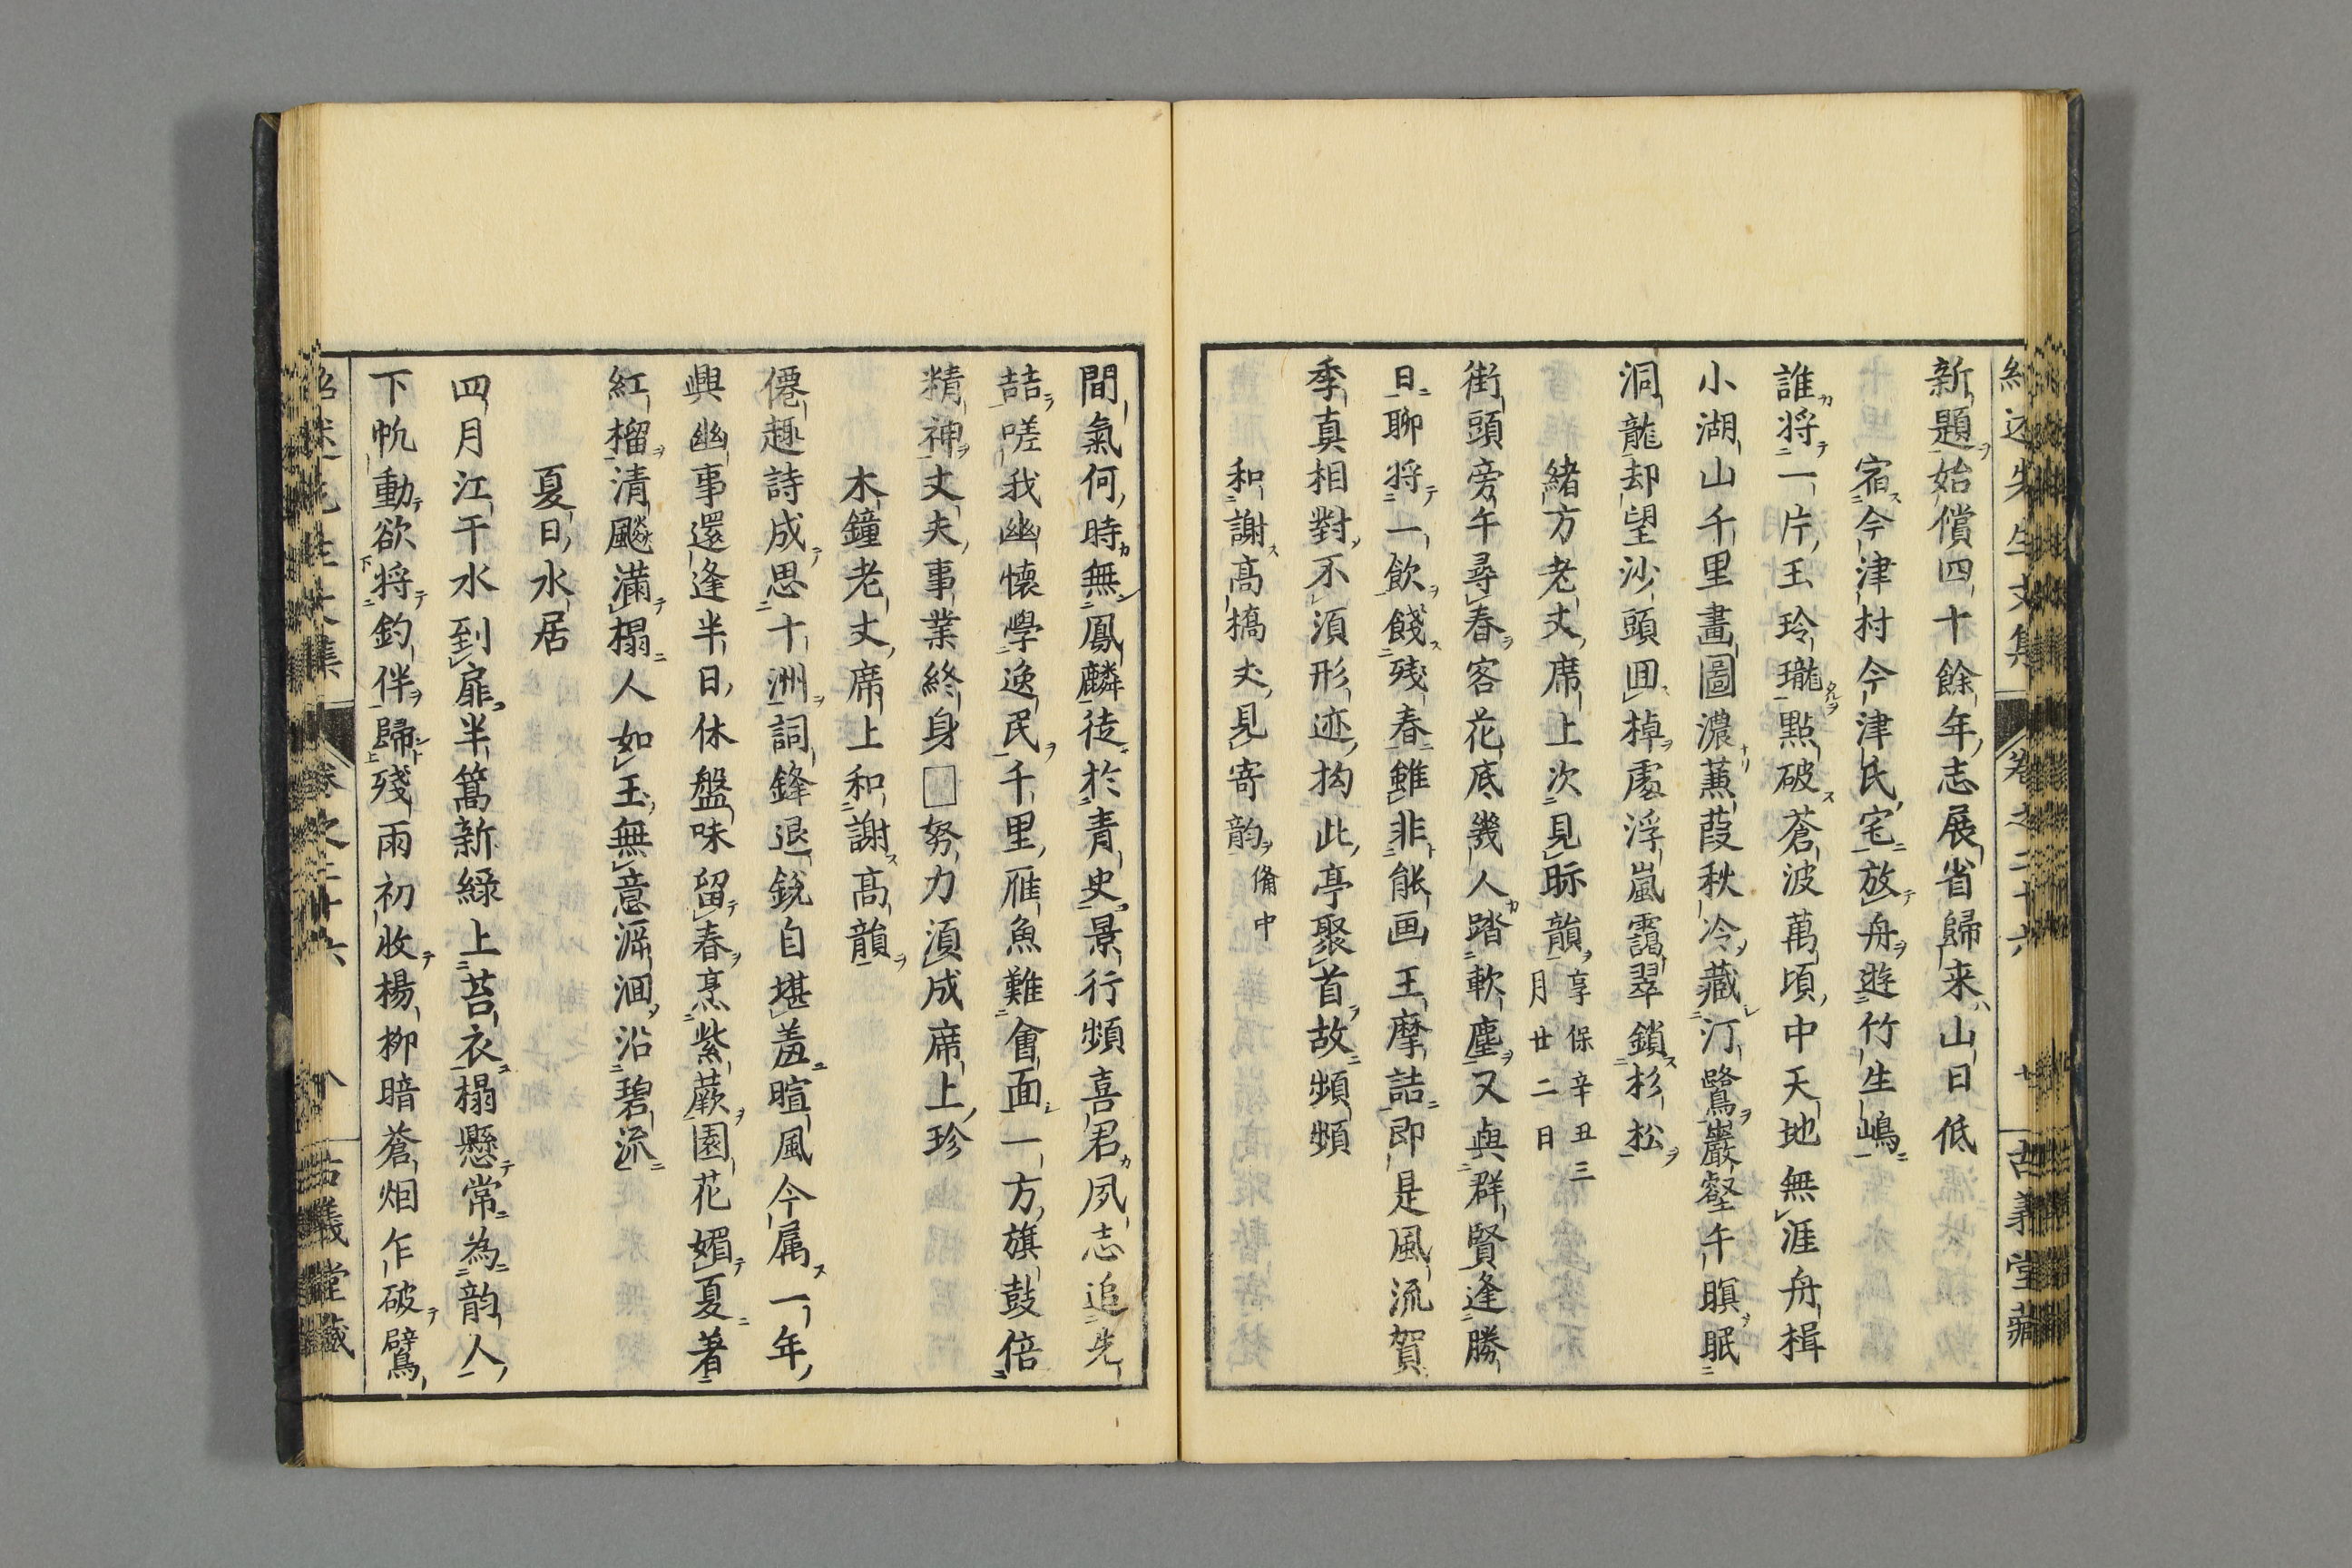 新題始償四十餘年志展省歸来山日低
宿今津村今津氏宅放舟遊竹生嶋
誰将一片玉玲瓏點破蒼波萬頃中天地無涯舟楫
小湖山千里畫圖濃蒹葭秋冷藏汀鷺巖壑午暝眠
洞龍却望沙頭囬棹處浮嵐靄翠鎖杉松
緒方老丈席上次見眎韻享保辛丑三
月廿二日
街頭旁午尋春客花底幾人踏軟塵又與群賢逢勝
日聊将一飲餞殘春雖非能画王摩詰即是風流賀
季真相對不須形迹拘此亭聚首故頻頻
和謝髙橋丈見寄韵備中
間氣何時無鳳麟徒於青史景行頻喜君夙志追先
喆嗟我幽懐學逸民千里雁魚難會面一方旗鼓倍
精神丈夫事業終身□努力須成席上珍
木鐘老丈席上和謝髙韻
僊趣詩成思十洲詞鋒退銳自堪羞暄風今属一年
興幽事還逢半日休盤味留春烹紫蕨園花媚夏著
紅榴清飈滿榻人如玉無意㳺洄沿碧流
夏日水居
四月江干水到扉半篙新緑上苔衣榻懸常為韵人
下帆動欲将釣伴歸殘雨初收楊柳暗蒼烟乍破鷿
卷之二十六
古義堂藏